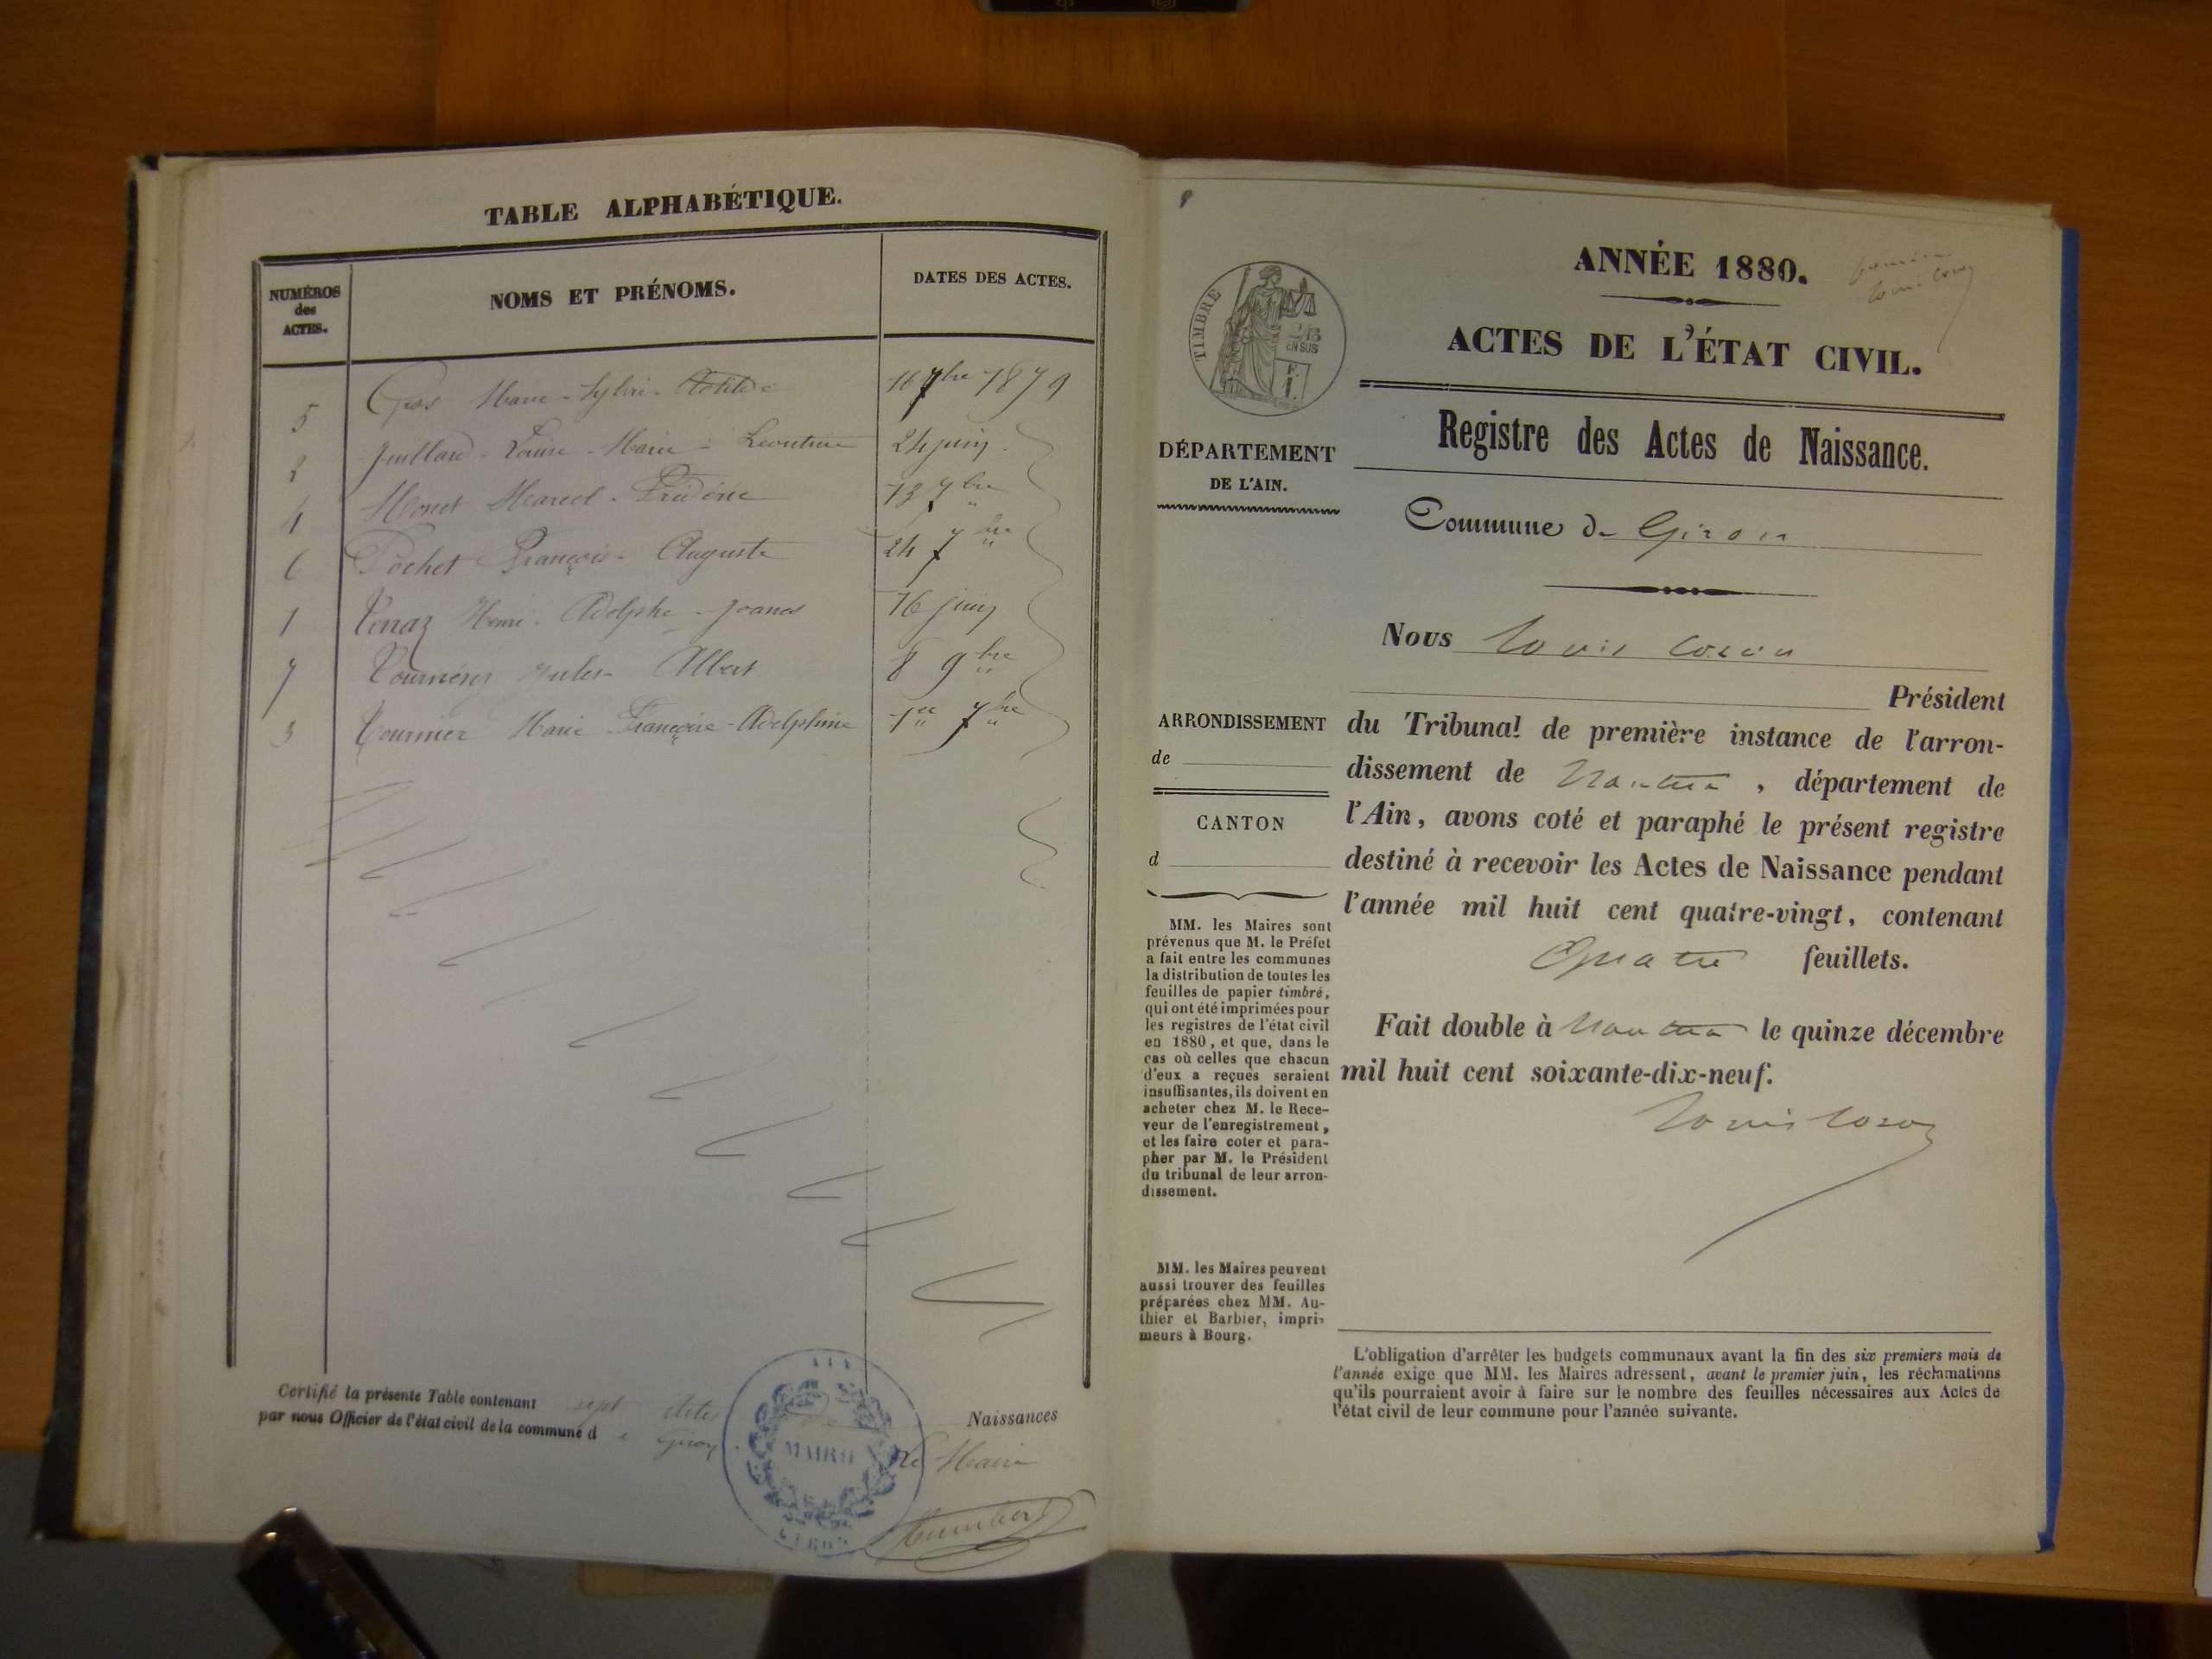 TABLE ALPHABÉTIQUE.
NUMÉROS des ACTES.
NOMS ET PRÉNOMS.
DATES DES ACTES.
5 Gros Marie - Sylvie - Clotilde 16 7bre 1879
2 Juillard - Louise - Marie - Léontine 24 juin
4 Monet Marcel - Frédéric 13 7bre
6 Pochet François - Auguste 24 7bre
1 Vuaz Henri - Adolphe - Joanes 16 juin
7 Tournier Jules - Albert 8 9bre
3 Tournier Marie Françoise - Adelphine 1er 7bre
Certifié la présente Table contenant sept actes Naissances
par nous Officier de l'état civil de la commune de Giron
Le Maire
AIN
MAIRIE
GIRON
Humbert
ANNÉE 1880.
TIMBRE
EN SUS
ACTES DE L'ÉTAT CIVIL.
DÉPARTEMENT
DE L'AIN.
Registre des Actes de Naissance.
Commune de Giron
Nous Louis
Président
ARRONDISSEMENT
de
CANTON
d
du Tribunal de première instance de l'arron-
dissement de Nantua , département de
l'Ain, avons coté et paraphé le présent registre
destiné à recevoir les Actes de Naissance pendant
l'année mil huit cent quatre-vingt, contenant
Quatre feuillets.
Fait double à Nantua le quinze décembre
mil huit cent soixante-dix-neuf.
MM. les Maires sont
prévenus que M. le Préfet
a fait entre les communes
la distribution de toutes les
feuilles de papier timbré,
qui ont été imprimées pour
les registres de l'état civil
en 1880, et que, dans le
cas où celles que chacun
d'eux a reçues seraient
insuffisantes, ils doivent en
acheter chez M. le Rece-
veur de l'enregistrement,
et les faire coter et para-
pher par M. le Président
du tribunal de leur arron-
dissement.
MM. les Maires peuvent
aussi trouver des feuilles
préparées chez MM. Au-
thier et Barbier, impri-
meurs à Bourg.
L'obligation d'arrêter les budgets communaux avant la fin des six premiers mois de
l'année exige que MM. les Maires adressent, avant le premier juin, les réclamations
qu'ils pourraient avoir à faire sur le nombre des feuilles nécessaires aux Actes de
l'état civil de leur commune pour l'année suivante.